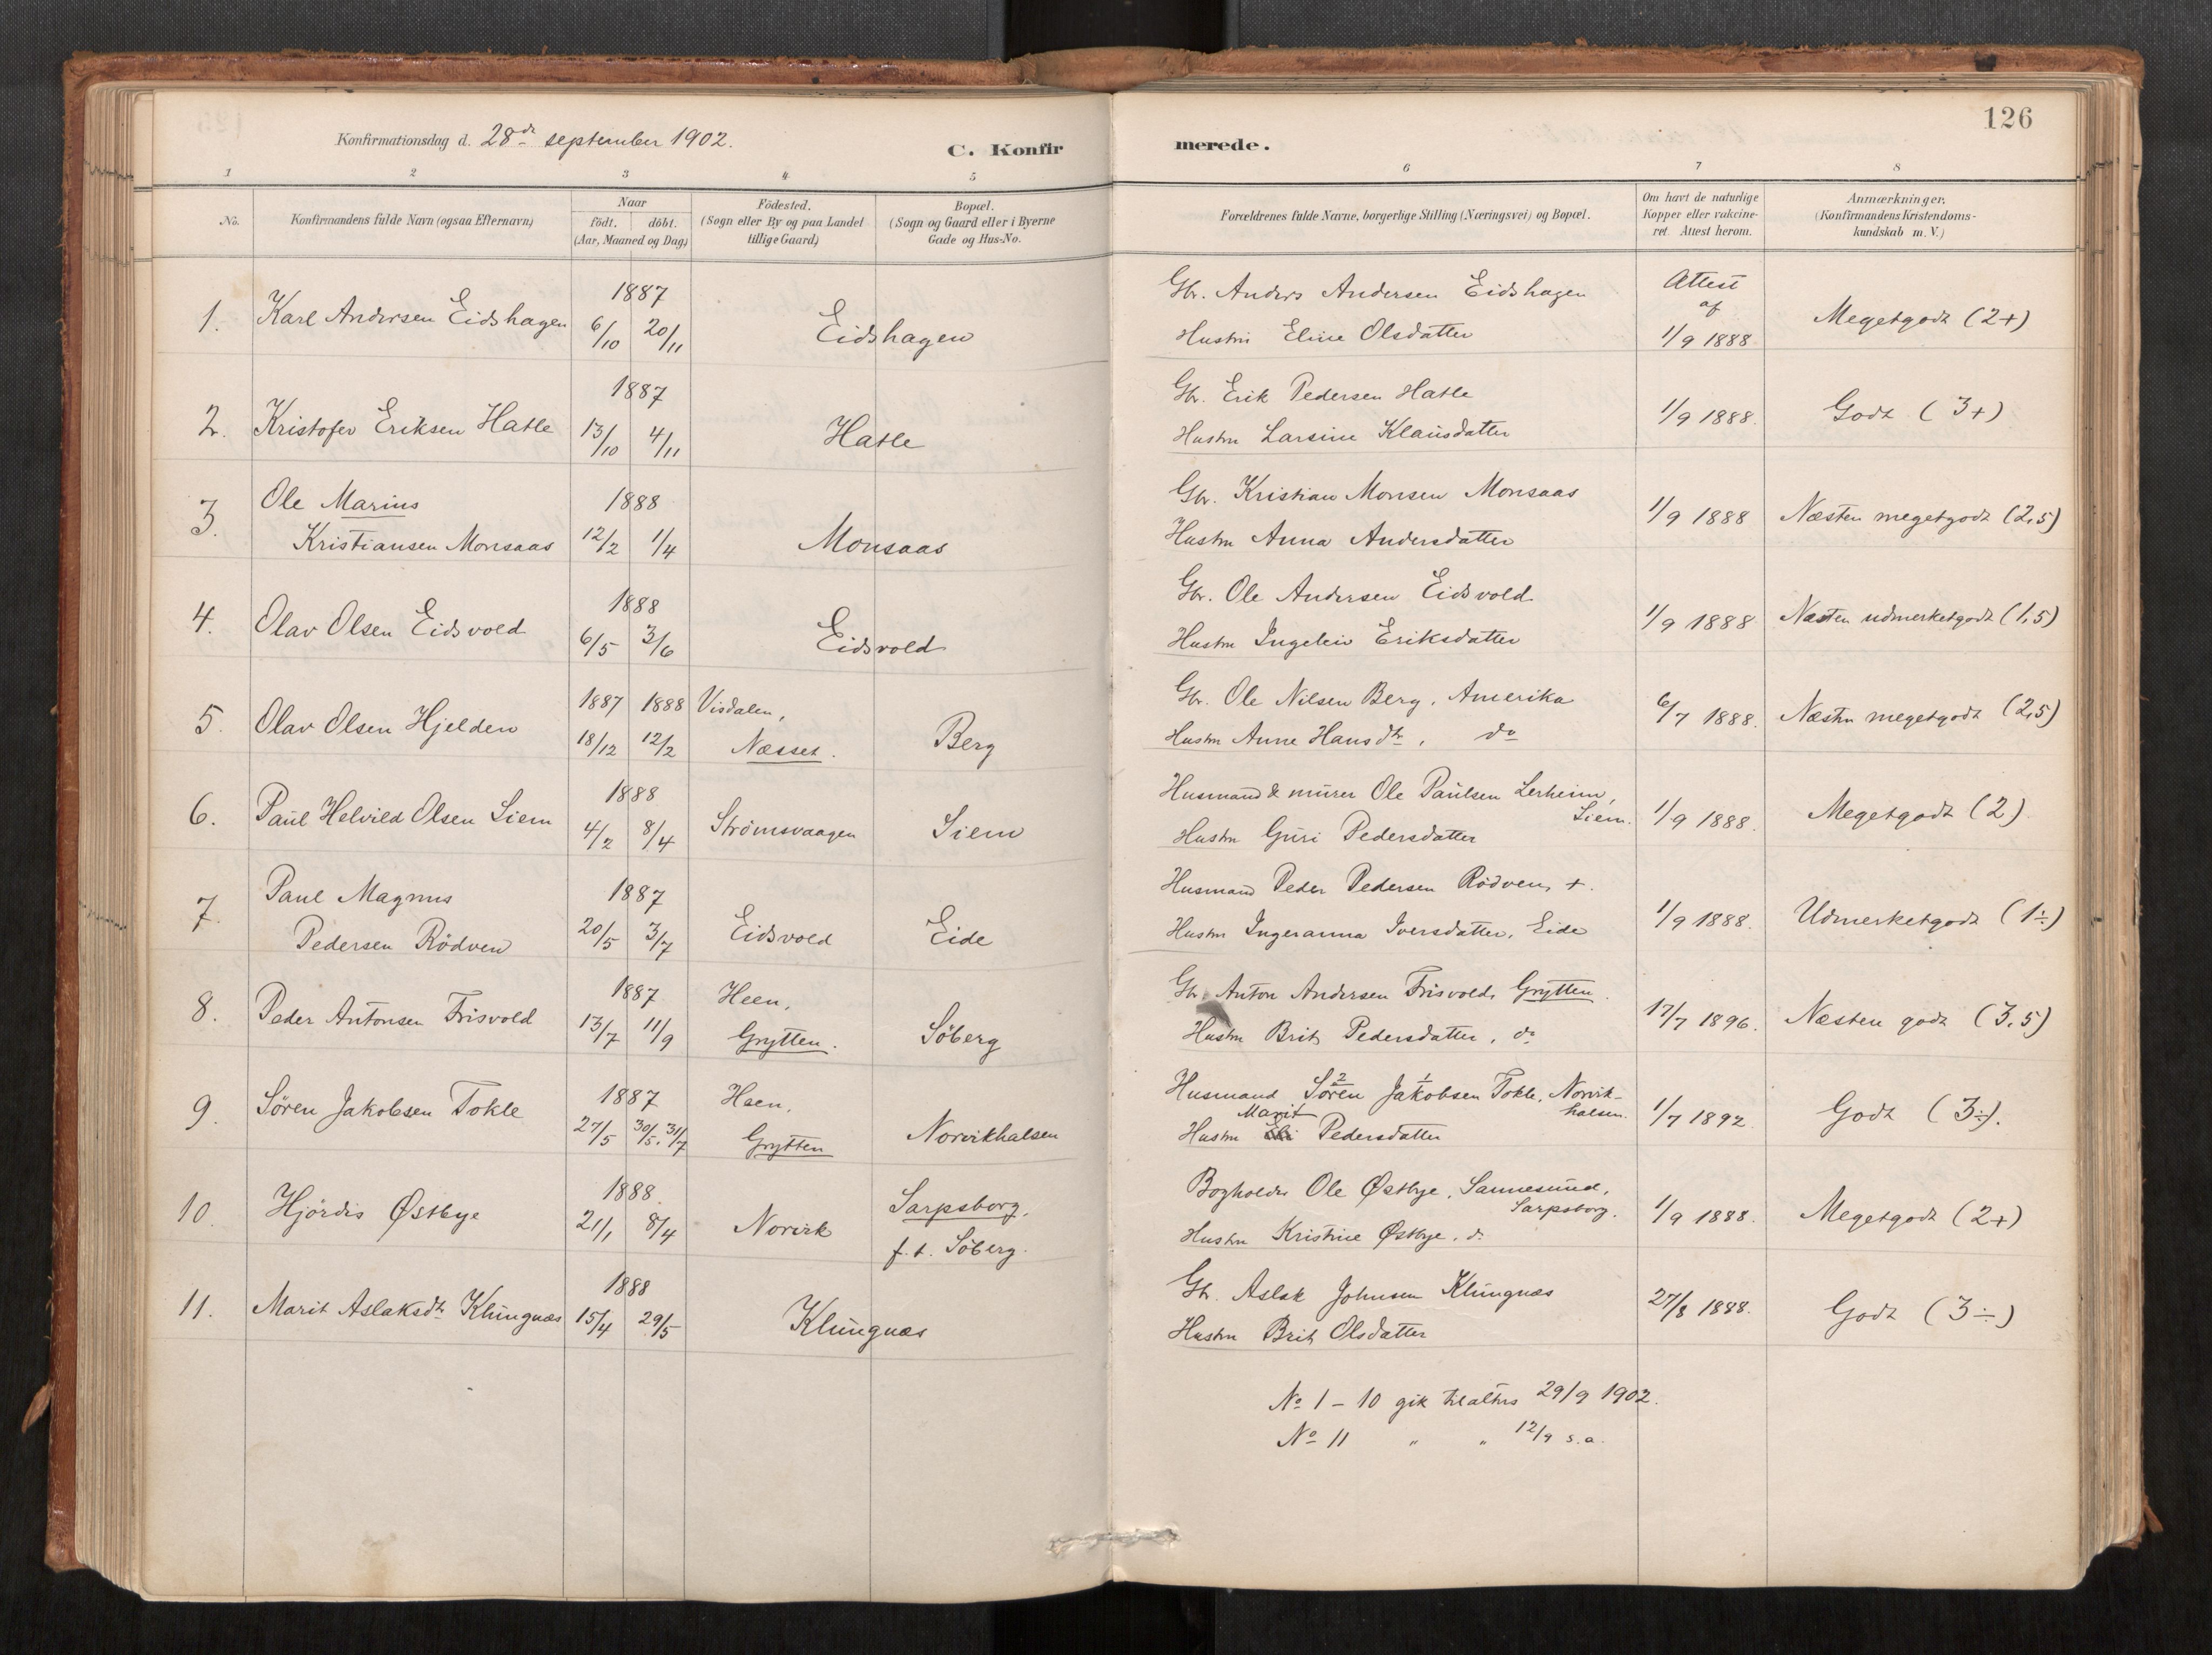 126
Konfirmationsdag d. 28de september 1902.
C. Konfirmerede.
1 2 3 4 5 6 7 8
No.
Konfirmandens fulde Navn (ogsaa Efternavn)
Naar
födt. döbt.
(Aar, Maaned og Dag)
Födested.
(Sogn eller By og paa Landet
tillige Gaard)
Bopæl.
(Sogn og Gaard eller i Byerne
Gade og Hus-No.
Forældrenes fulde Navne, borgerlige Stilling (Næringsvei) og Bopæl.
Om havt de naturlige
Kopper eller vakcine-
ret. Attest herom.
Anmærkninger.
(Konfirmandens Kristendoms-
kundskab m. V.)
1. Karl Andersen Eidshagen
1887
6/10 20/11
Eidshagen
Gbr. Anders Andersen Eidshagen
Hustru Eline Olsdatter
Attest
af
1/9 1888
Megetgodt (2+)
2. Kristofer Eriksen Hatle
1887
13/10 4/11
Hatle
Gbr. Erik Pedersen Hatle
Hustru Larsine Klausdatter
1/9 1888.
Godt (3+)
3. Ole Marius
Kristiansen Monsaas
1888
12/2 1/4
Monsaas
Gbr. Kristian Monsen Monsaas
Hustru Anna Andersdatter
1/9 1888
Næsten megetgodt (2,5)
4. Olav Olsen Eidsvold
1888
6/5 3/6
Eidsvold
Gbr. Ole Andersen Eidsvold
Hustru Ingeleiv Eriksdatter
1/9 1888
Næsten udmerketgodt (1,5)
5. Olav Olsen Hjelden
1887 1888
18/12 12/2
Visdalen,
Næsset.
Berg
Gbr. Ole Nilsen Berg, Amerika
Hustru Anne Hansdtr, do
6/7 1888.
Næsten megetgodt (2,5)
6. Paul Helvild Olsen Siem
1888
4/2 8/4
Strömsvaagen
Siem
Husmand & murer Ole Paulsen Lerheim,
Siem.
Hustru Guri Pedersdatter
1/9 1888.
Megetgodt (2)
7. Paul Magnus
Pedersen Rödven
1887
20/5 3/7
Eidsvold
Eide
Husmand Peder Pedersen Rödven, +.
Hustru Ingeranna Iversdatter, Eide
1/9 1888.
Udmerketgodt (1÷)
8. Peder Antonsen Frisvold
1887
13/7 11/9
Heen,
Grytten.
Söberg
Gbr. Anton Andersen Frisvold, Grytten.
Hustru Brit Pedersdatter, do
17/7 1896.
Næsten godt (3,5)
9. Sören Jakobsen Tokle
1887
27/5 30/5. 31/7
Heen,
Grytten
Norvikhalsen
Husmand Sören 2 Jakobsen 1 Tokle, Norvik-
halsen.
Marit
Hustru Eli Pedersdatter
1/7 1892
Godt (3÷).
10. Hjördis Østbye
1888.
21/1 8/4
Norvik
Sarpsborg.
f. t. Söberg.
Bogholder Ole Østbye, Sannesund,
Sarpsborg.
Hustru Kristine Østbye, do
1/9 1888.
Megetgodt (2+)
11. Marit Aslaksdtr Klungnæs
1888
15/4 29/5
Klungnæs
Gbr. Aslak Johnsen Klungnæs
Hustru Brit Olsdatter
27/8 1888.
Godt (3÷)
No 1 – 10 gik tilalters 29/9 1902.
No 11 " " 12/9 s. a.